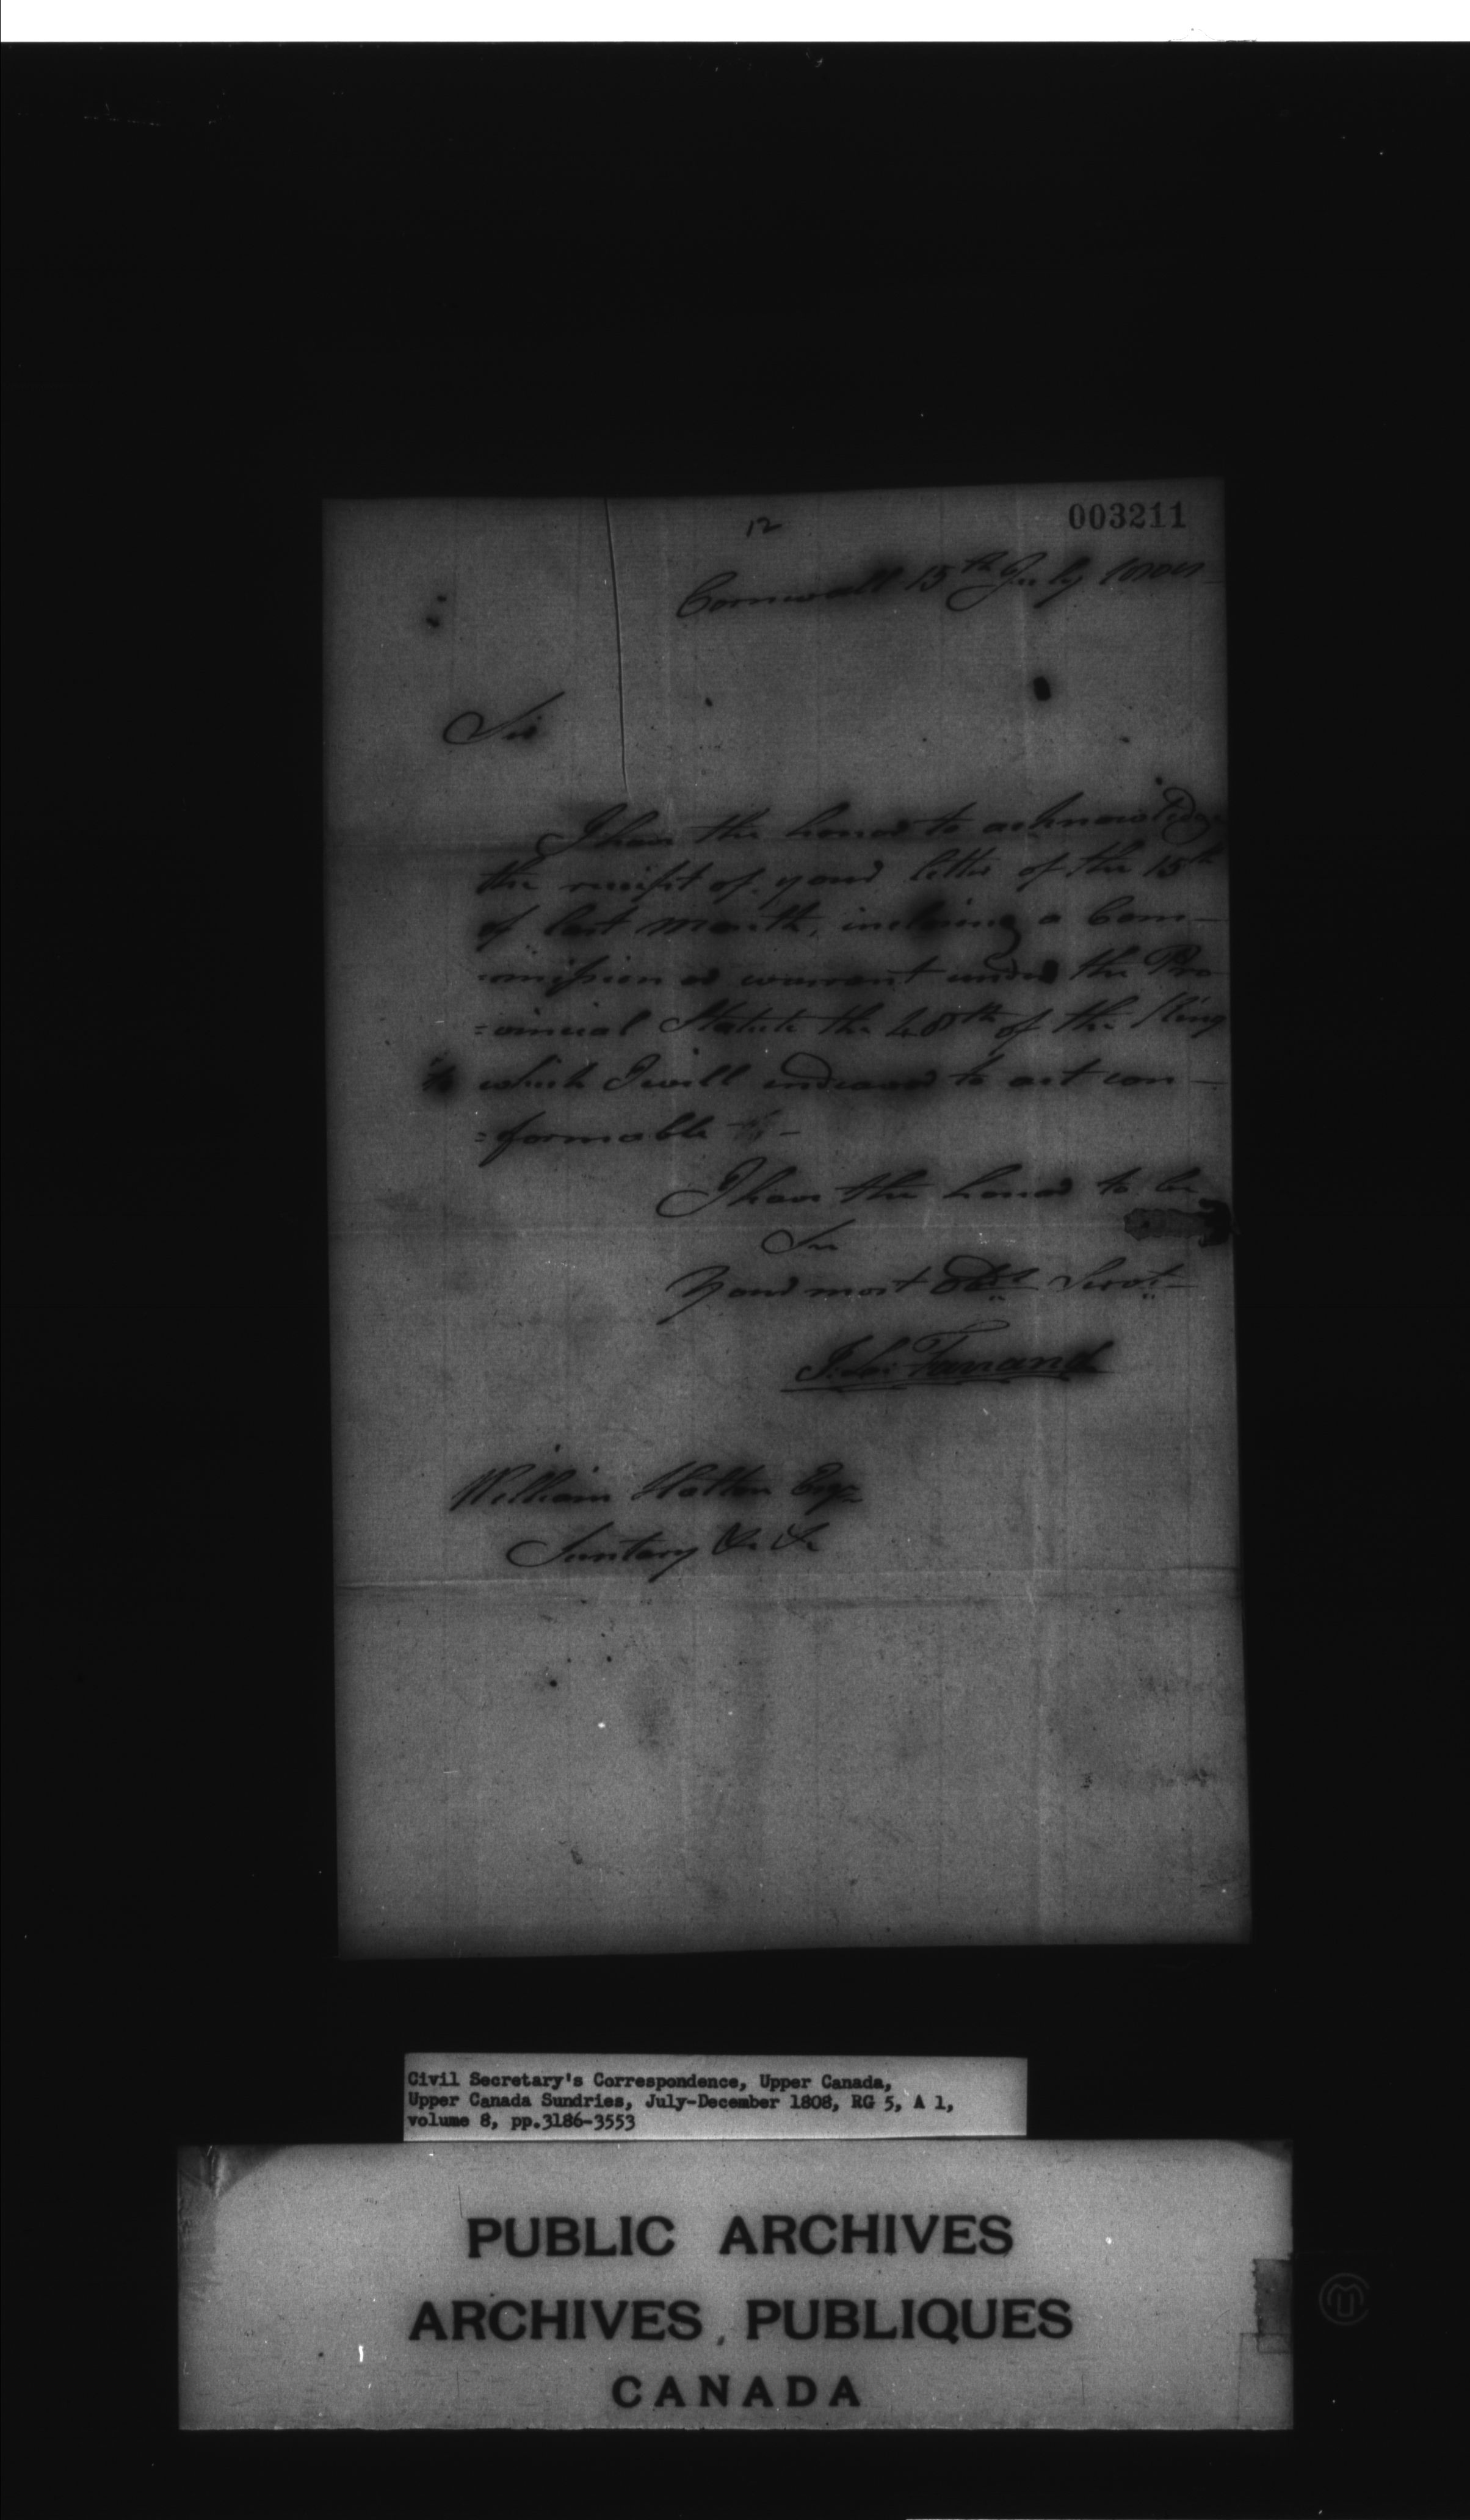 12
003211
Cornwall 15th July 1808
Sir
I have the honor to acknowledge
the receipt of your letter of the 15th
of last month, inclosing a Com-
=mission or warrant under the Pro
=vincial Statute the 48th of the King
to which I will endeavor to act con-
=formable
I have the honor to be
Sir
Your most Obt Servt
Farrand
William Halton Esqr
Secretary &c &c
Civil Secretary's Correspondence, Upper Canada,
Upper Canada Sundries, July-December 1808, RG 5, A 1,
volume 8, pp.3186-3553
PUBLIC ARCHIVES
ARCHIVES PUBLIQUES
CANADA